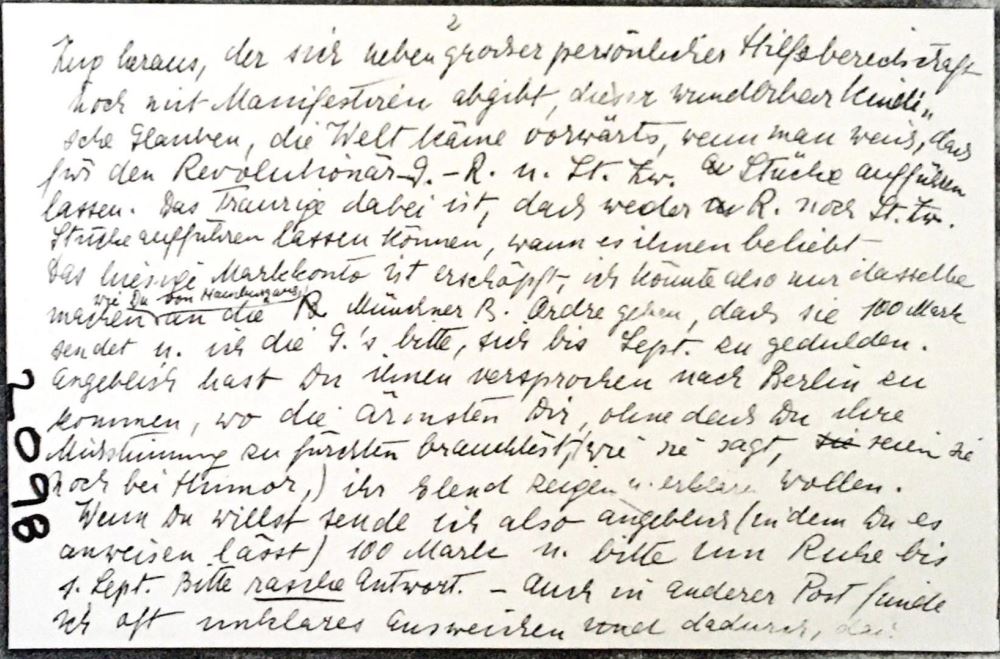 2
Zug heraus, der sich neben grosser persönlicher Hilfsbereitschaft
noch mit Manifestieren abgibt, dieser wunderbar kindi„
sche Glauben, die Welt käme vorwärts, wenn man weiss, dass
für den Revolutionär J.-R. u. St. Zw. Stücke aufführen
lassen. Das Traurige dabei ist, dass weder R. noch St. Zw.
Stücke aufführen lassen können, wann es ihnen beliebt
Das hiesige Markkonto ist erschöpft, ich könnte also nur dasselbe
wie Du von Hamburg aus,
machen an die Münchner B. Ordre geben, dass sie 100 Mark
sendet u. ich die J.'s bitte, sich bis Sept. zu gedulden.
Angeblich hast Du ihnen versprochen nach Berlin zu
kommen, wo die Ärmsten Dir, ohne dass Du ihre
Missstimmung zu fürchten brauchtest, (wie sie sagt, seien sie
noch bei Humor,) ihr Elend zeigen u. erklären wollen.
Wenn Du willst sende ich also angeblich (indem Du es
anweisen lässt) 100 Mark u. bitte um Ruhe bis
1. Sept. Bitte rasche Antwort. – Auch in anderer Post finde
ich oft unklares Ausweichen und dadurch,
2098